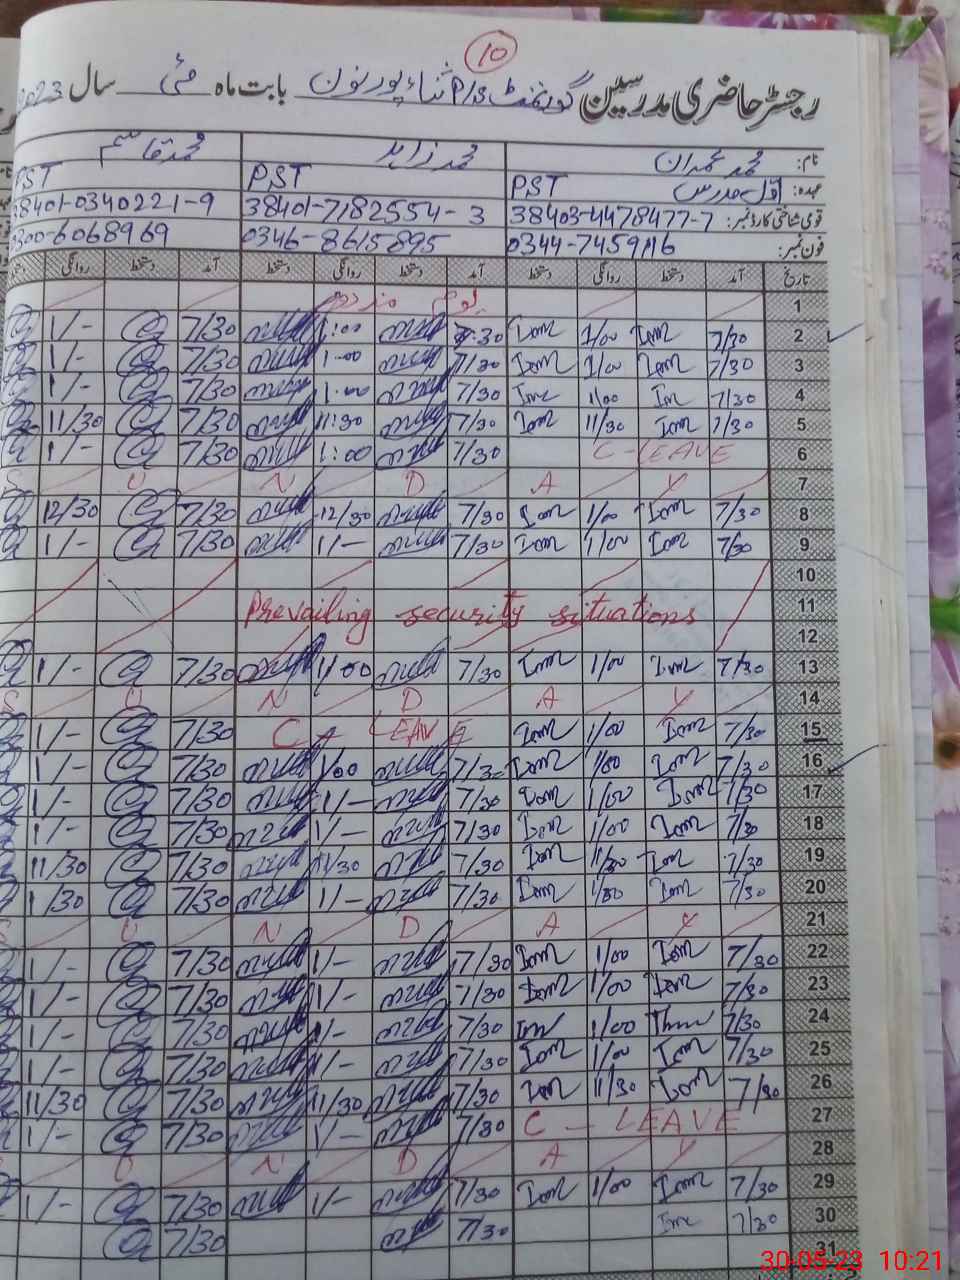 10
رجسٹر حاضری مدرسین گورنمنٹ P/S ثناء پور نون بابت ماہ مئی سال 2023
نام: محمد عمران محمد زاہد محمد قاسم
عہدہ: اوّل مدرس PST PST PST
قومی شناختی کارڈ نمبر: 38403-4478477-7 38401-7182554-3 38401-0340221-9
فون نمبر: 0344-7459116 0346-8615895 0300-6068969
تاریخ آمد دستخط روانگی دستخط آمد دستخط روانگی دستخط آمد دستخط روانگی
1 یوم مزدور
2 7/30 Iom 1/00 Iom 7:30 1:00 7/30 1/-
3 7/30 Iom 1/00 Iom 7/30 1:00 7/30 1/-
4 7/30 Im 1/00 Im 7/30 1:00 7/30 1/-
5 7/30 Iom 11/30 Iom 7/30 11:30 7/30 11/30
6 C-LEAVE 7/30 1:00 7/30 1/-
7 S U N D A Y
8 7/30 Iom 1/00 Iom 7/30 12/30 7/30 12/30
9 7/30 Iom 1/00 Iom 7/30 1/- 7/30 1/-
10
11 Prevailing security situations
12
13 7/30 Iom 1/00 Iom 7/30 1/00 7/30 1/-
14 S U N D A Y
15 7/30 Iom 1/00 Iom C - LEAVE 7/30 1/-
16 7/30 Iom 1/00 Iom 7/30 1/00 7/30 1/-
17 7/30 Iom 1/00 Iom 7/30 1/- 7/30 1/-
18 7/30 Iom 1/00 Iom 7/30 1/- 7/30 1/-
19 7/30 Iom 11/30 Iom 7/30 11/30 7/30 11/30
20 7/30 Iom 1/00 Iom 7/30 1/- 7/30 1/30
21 S U N D A Y
22 7/30 Iom 1/00 Iom 7/30 1/- 7/30 1/-
23 7/30 Iom 1/00 Iom 7/30 1/- 7/30 1/-
24 7/30 1/00 7/30 1/- 7/30 1/-
25 7/30 Iom 1/00 Iom 7/30 1/- 7/30 1/-
26 7/30 Iom 11/30 Iom 7/30 11/30 7/30 11/30
27 C - LEAVE 7/30 1/- 7/30 1/-
28 U N D A Y
29 7/30 Iom 1/00 Iom 7/30 1/- 7/30 1/-
30 7/30 Im 7/30 7/30
31
30-05-23 10:21